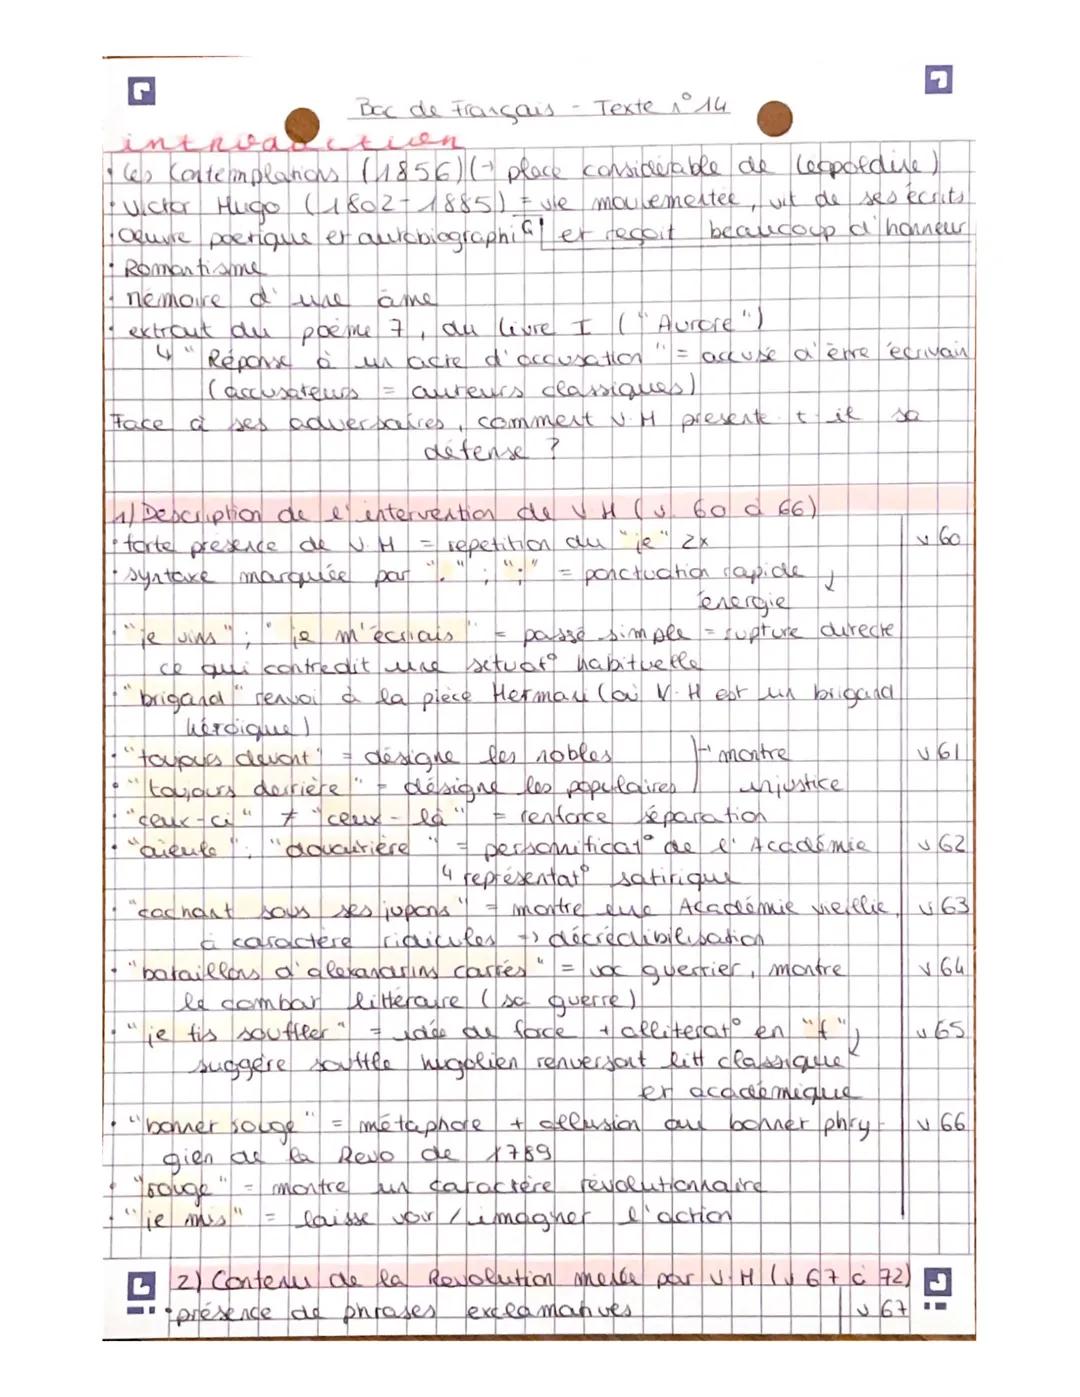 Bac de Français - Texte n°14
introduction
· Les Contemplations (1856) (→ place considérable de Léopoldine)
· Victor Hugo (1802-1885) = vie mouvementée, vit de ses écrits
· Oeuvre poetique et autobiographiq et reçoit beaucoup d'honneur
· Romantisme
· mémoire d'une âme
· extrait du poème 7, du livre I ("Aurore")
↳ "Réponse à un acte d'accusation" = accusé d'être écrivain
(accusateurs = auteurs classiques)
Face à ses adversaires, comment V.H présente t-il sa
défense ?
1) Description de l'intervention de V.H (v. 60 à 66)
· forte présence de V.H = repetition du "je" 2x v 60
· syntaxe marquée par "." ; ";" = ponctuation rapide ↓
énergie
· "je vins" ; "je m'écriais" = passé simple = rupture directe
ce qui contredit une situat° habituelle
· "brigand" renvoi à la pièce Hernani (où V.H est un brigand
héroïque)
· "toujours devant" = désigne les nobles → montre v 61
· "toujours derrière" = désigne les populaires injustice
· "ceux-ci" ≠ "ceux-là" = renforce séparation
· "aïeule", "douairière" = personnificat° de l'Académie v 62
↳ représentat° satirique
· "cachant sous ses jupons" = montre une Académie vieillie, v 63
à caractère ridicules → décrédibilisation
· "bataillons d'alexandrins carrés" = voc guerrier, montre v 64
le combat littéraire (sa guerre)
· "je fis souffler" = idée de face + alliterat° en "f" v 65
suggère souffle hugolien renversant litt classique
et académique
· "bonnet rouge" = métaphore + allusion au bonnet phry- v 66
gien de la Revo de 1789
· "rouge" = montre un caractère révolutionnaire
· "je mis" = laisse voir / imaginer l'action
2) Contenu de la Revolution menée par V.H (v 67 à 72)
· présence de phrases exclamatives v 67